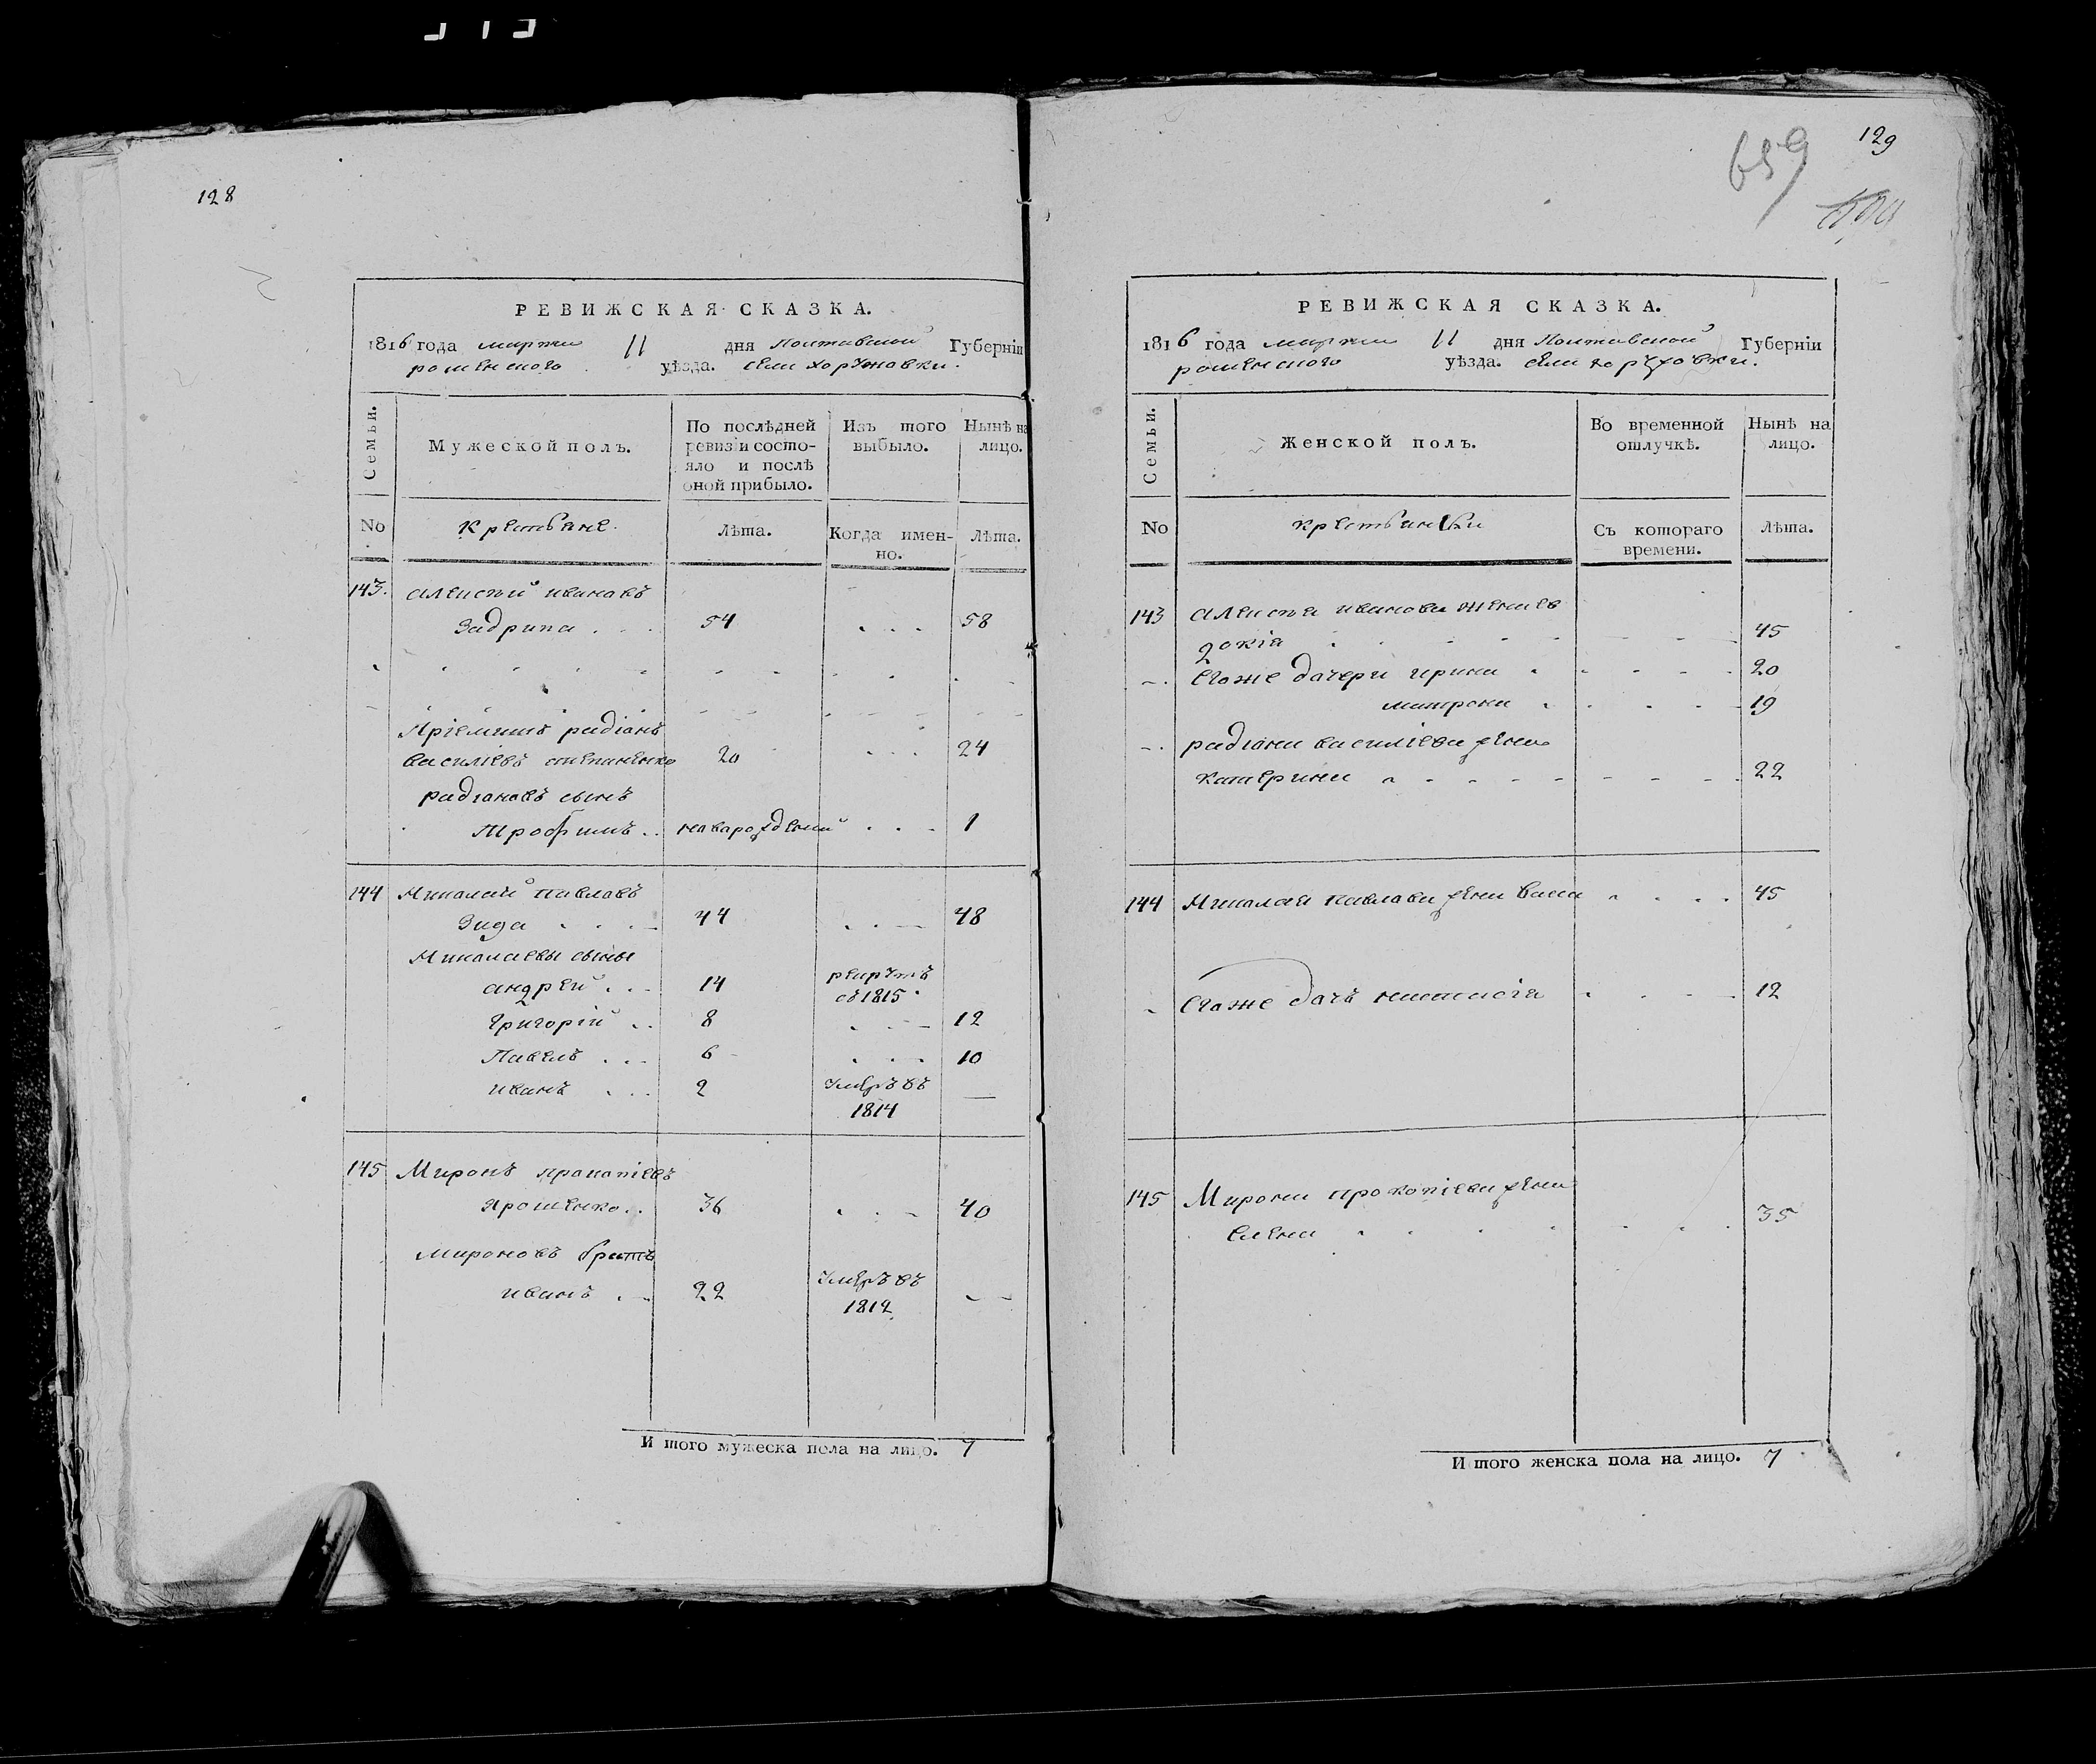 128
РЕВИЖСКАЯ СКАЗКА.
1816 года марта 11 дня Полтавской Губерніи
роменского уѣзда. села хоружовки.
Семьи.
Мужеской полъ.
По послѣдней ревизіи состояло и послѣ оной прибыло.
Изъ того выбыло.
Нынѣ на лицо.
No
Крестьяне.
Лѣта.
Когда именно.
Лѣта.
143. алексѣй ивановъ
Задрипа . . . 54 . . . 58
Пріемишъ радіонъ
василіевъ степаненко 20 . . . 24
радіоновъ сынъ
Трофимъ . . новарожденый . . . 1
144 Миколай павловъ
Зида . . . 44 . . . 48
Миколаевы сыны
андрей . . . 14 рекрутъ
съ 1815
григорій . . 8 . . . 12
Павелъ . . . 6 . . . 10
иванъ . . . 2 умеръ въ
1814 —
145 Миронъ пракопіевъ
ярошенко . . 36 . . . 40
мироновъ братъ
иванъ . . 22 умеръ въ
1812 —
И того мужеска пола на лицо. 7
129
659
РЕВИЖСКАЯ СКАЗКА.
1816 года марта 11 дня Полтавской Губерніи
роменского уѣзда. села хоружовки.
Семьи.
Женской полъ.
Во временной отлучкѣ.
Нынѣ на лицо.
No
крестьянки
Съ котораго времени.
Лѣта.
143 алексѣя иванова жена ев
докія . . . 45
Егоже дачери ирина . . . 20
матрона . . . 19
радіона василіева жена
катерина . . . 22
144 Миколая павлова жена васа . . . 45
Егоже дачъ настасія . . . 12
145 Мирона прокопіева жена
елена . . . 35
И того женска пола на лицо. 7